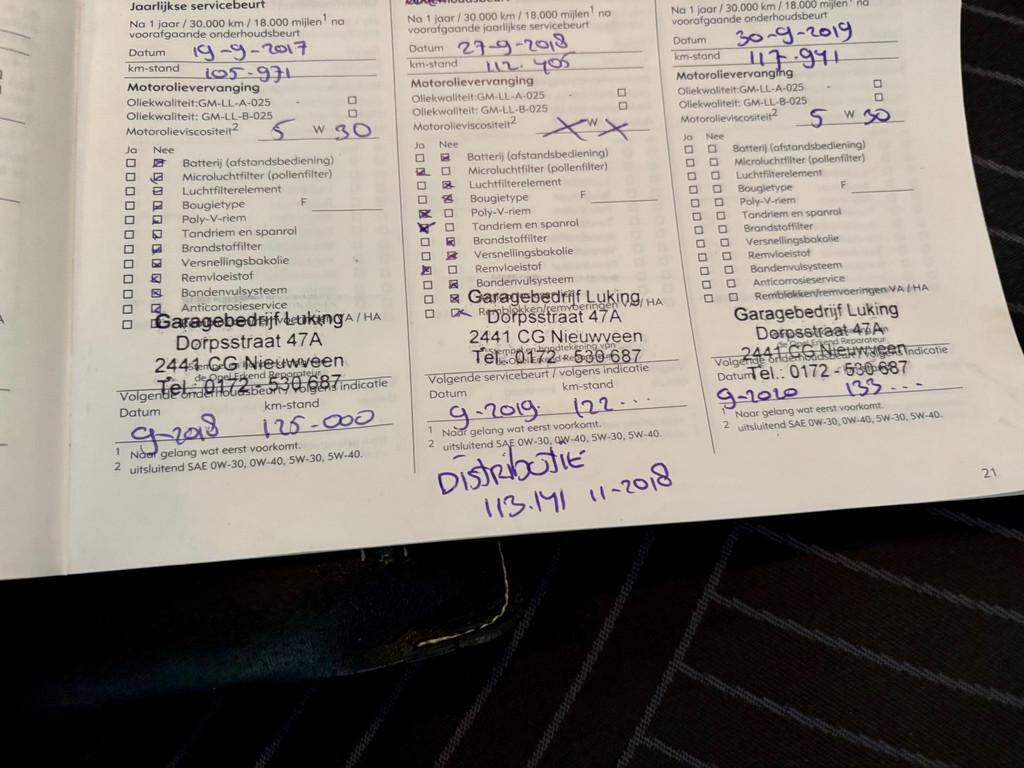 Jaarlijkse servicebeurt
Na 1 jaar / 30.000 km / 18.000 mijlen1 na
voorafgaande onderhoudsbeurt
Datum 19-9-2017
km-stand 105-971
Motorolievervanging
Oliekwaliteit:GM-LL-A-025
Oliekwaliteit: GM-LL-B-025
Motorolieviscositeit2 5 W 30
Ja Nee
Batterij (afstandsbediening)
Microluchtfilter (pollenfilter)
Luchtfilterelement
Bougietype F
Poly-V-riem
Tandriem en spanrol
Brandstoffilter
Versnellingsbakolie
Remvloeistof
Bandenvulsysteem
Anticorrosieservice
VA / HA
Garagebedrijf Luking
Dorpsstraat 47A
2441 CG Nieuwveen
de Opel Erkend Reparateur
Tel.: 0172 - 530 687
Volgende onderhoudsbeurt / volgens indicatie
Datum km-stand
9-2018 125-000
1 Naar gelang wat eerst voorkomt.
2 uitsluitend SAE 0W-30, 0W-40, 5W-30, 5W-40.
Na 1 jaar / 30.000 km / 18.000 mijlen1 na
voorafgaande jaarlijkse servicebeurt
Datum 27-9-2018
km-stand 112.405
Motorolievervanging
Oliekwaliteit:GM-LL-A-025
Oliekwaliteit: GM-LL-B-025
Motorolieviscositeit2 X W X
Ja Nee
Batterij (afstandsbediening)
Microluchtfilter (pollenfilter)
Luchtfilterelement
Bougietype F
Poly-V-riem
Tandriem en spanrol
Brandstoffilter
Versnellingsbakolie
Remvloeistof
Bandenvulsysteem
Garagebedrijf Luking
Remblokken/remvoeringen VA / HA
Dorpsstraat 47A
2441 CG Nieuwveen
Stempel en handtekening van
Tel.: 0172 - 530 687
Volgende servicebeurt / volgens indicatie
Datum km-stand
9-2019 122...
1 Naar gelang wat eerst voorkomt.
2 uitsluitend SAE 0W-30, 0W-40, 5W-30, 5W-40.
DISTRIBUTIE
113.141 11-2018
Na 1 jaar / 30.000 km / 18.000 mijlen1 na
voorafgaande onderhoudsbeurt
Datum 30-9-2019
km-stand 117.941
Motorolievervanging
Oliekwaliteit:GM-LL-A-025
Oliekwaliteit: GM-LL-B-025
Motorolieviscositeit2 5 W 30
Ja Nee
Batterij (afstandsbediening)
Microluchtfilter (pollenfilter)
Luchtfilterelement
Bougietype F
Poly-V-riem
Tandriem en spanrol
Brandstoffilter
Versnellingsbakolie
Remvloeistof
Bandenvulsysteem
Anticorrosieservice
Remblokken/remvoeringen VA / HA
Garagebedrijf Luking
Dorpsstraat 47A
de Opel Erkend Reparateur
2441 CG Nieuwveen
Volgende onderhoudsbeurt / volgens indicatie
Datum Tel.: 0172 - 530 687
9-2020 133...
1 Naar gelang wat eerst voorkomt.
2 uitsluitend SAE 0W-30, 0W-40, 5W-30, 5W-40.
21